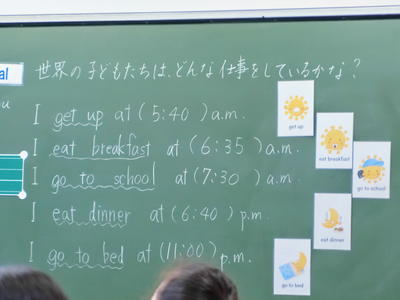 世界の子どもたちは、どんな仕事をしているかな?
al
ou
I get up at (5:40) a.m.
I eat breakfast at (6:35) a.m.
I go to school at (7:30) a.m.
I eat dinner at (6:40) p.m.
I go to bed at (11:00) p.m.
get up
eat breakfast
go to school
eat dinner
go to bed